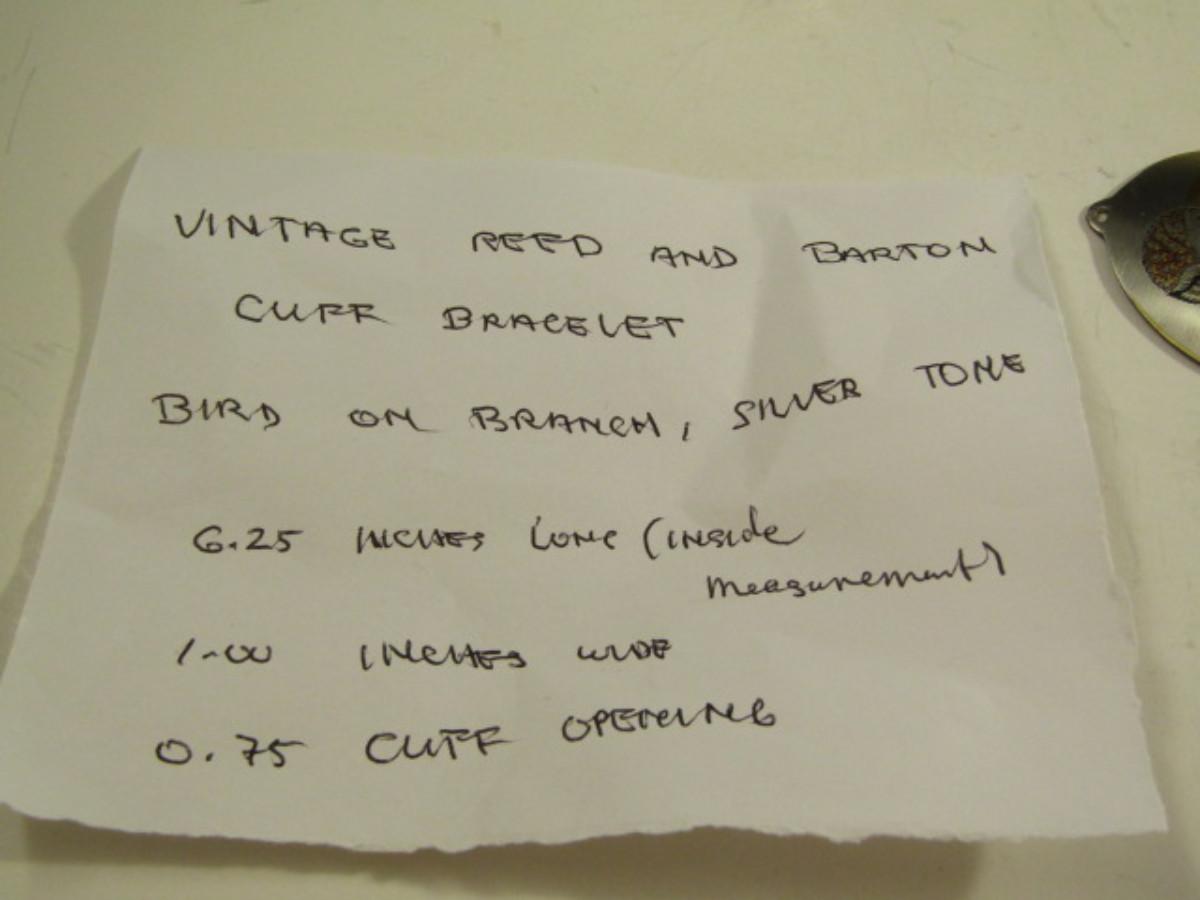 VINTAGE REED AND BARTON
CUFF BRACELET
BIRD ON BRANCH, SILVER TONE
6.25 INCHES LONG (inside
measurement)
1.00 INCHES WIDE
0.75 CUFF OPENING